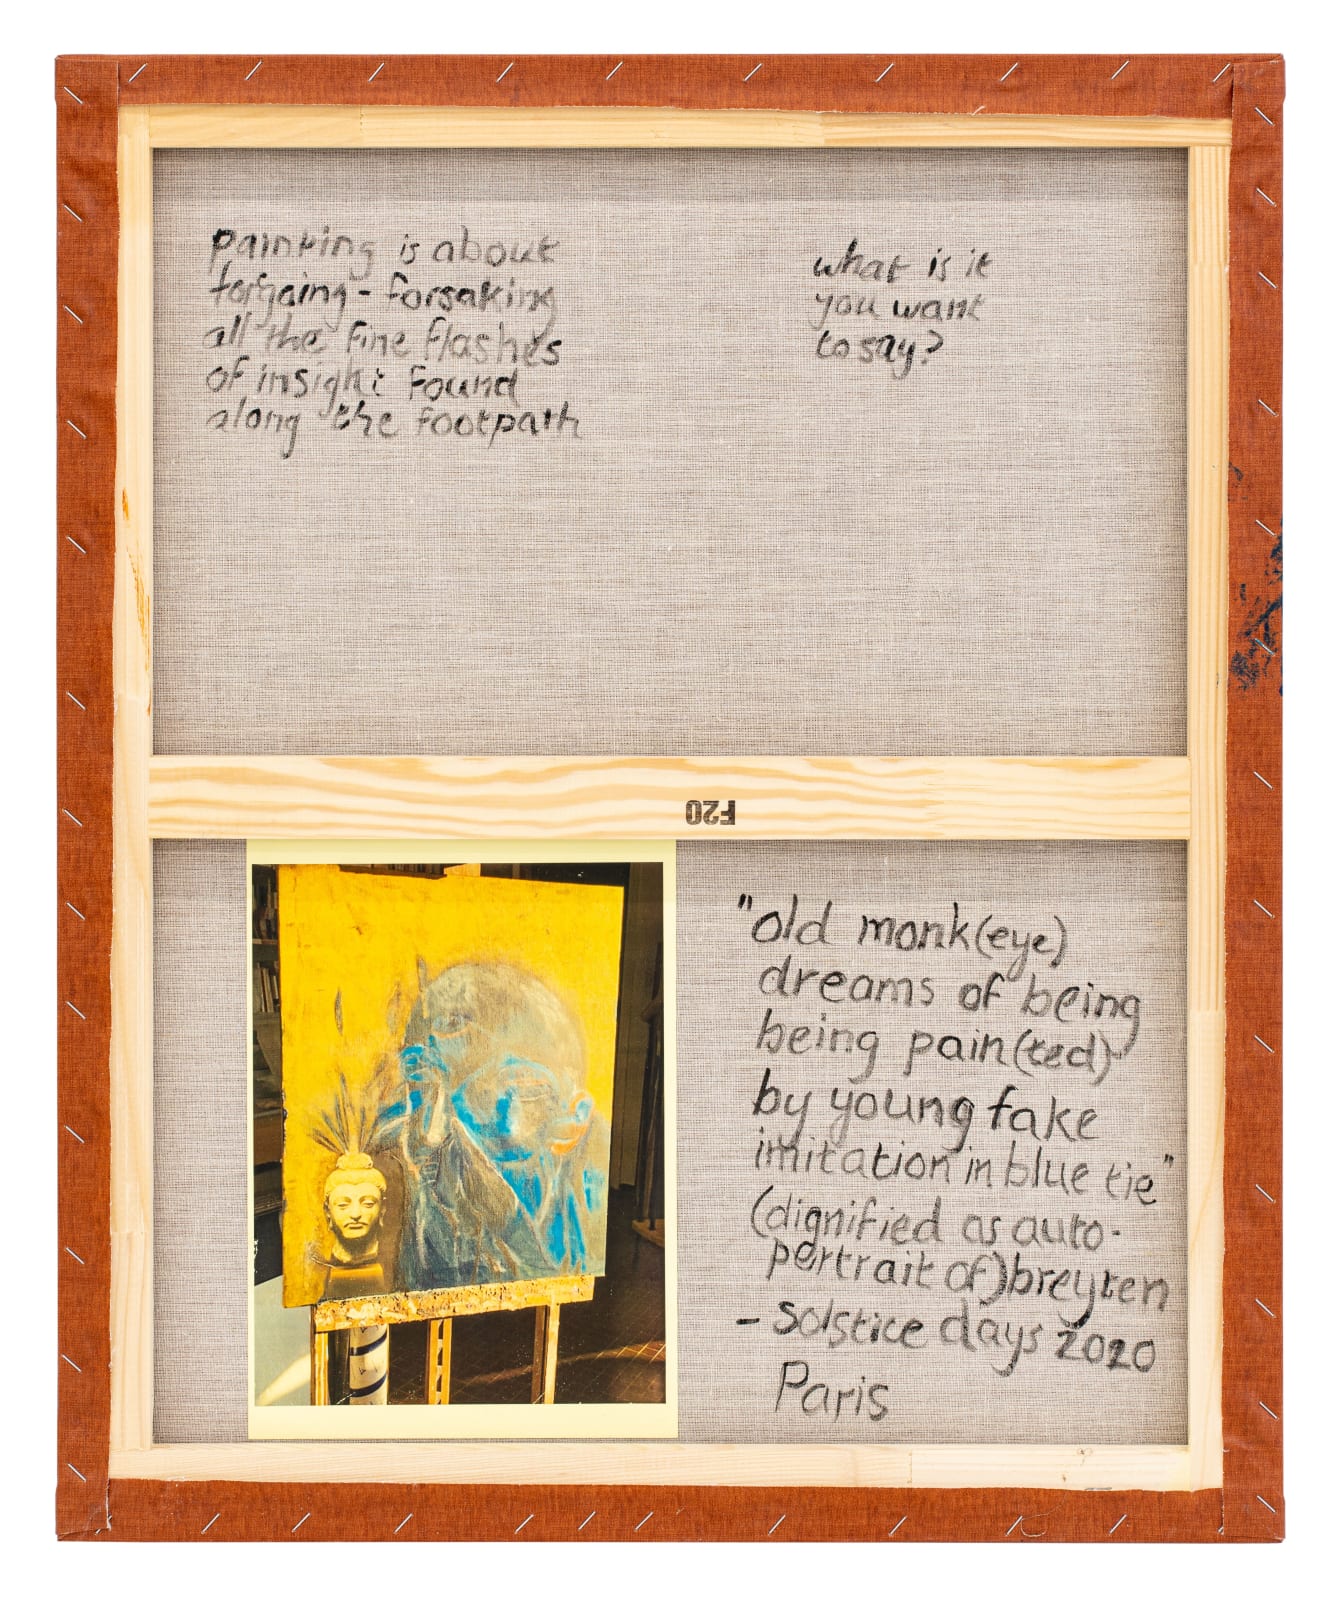 painting is about
forgoing - forsaking
all the fine flashes
of insight found
along the footpath
what is it
you want
to say?
F20
"old monk(eye)
dreams of being
being pain(ted)
by young fake
imitation in blue tie"
(dignified as auto-
portrait of) breyten
- solstice days 2020
Paris